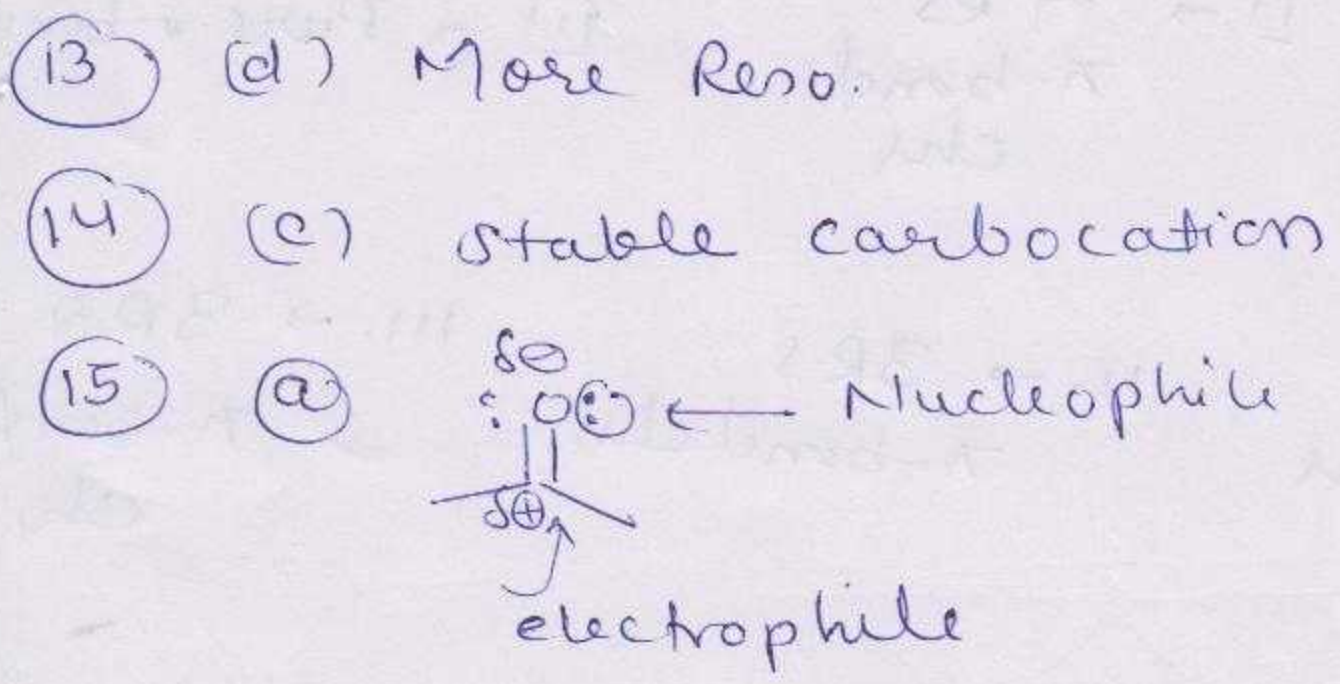 13 (d) More Reso.
14 (c) stable carbocation
δ⊖
15 (a) : O: ← Nucleophile
δ⊕
electrophile